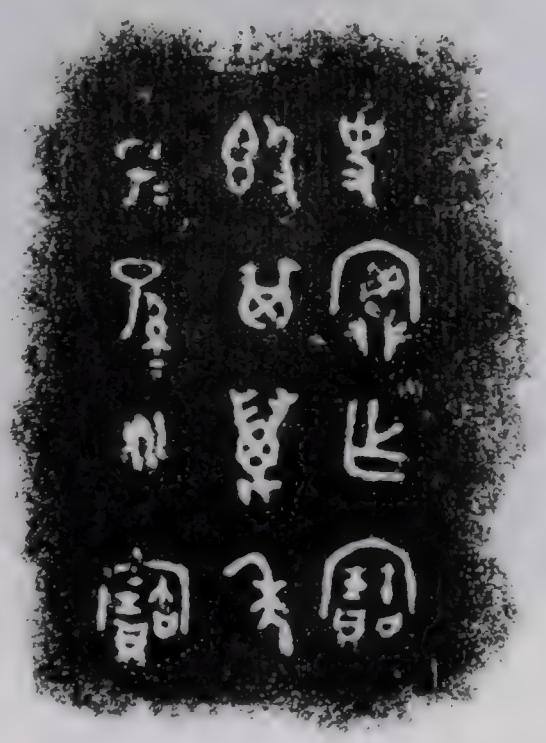 乍寶
𣪘其萬年
子=孫=永寶